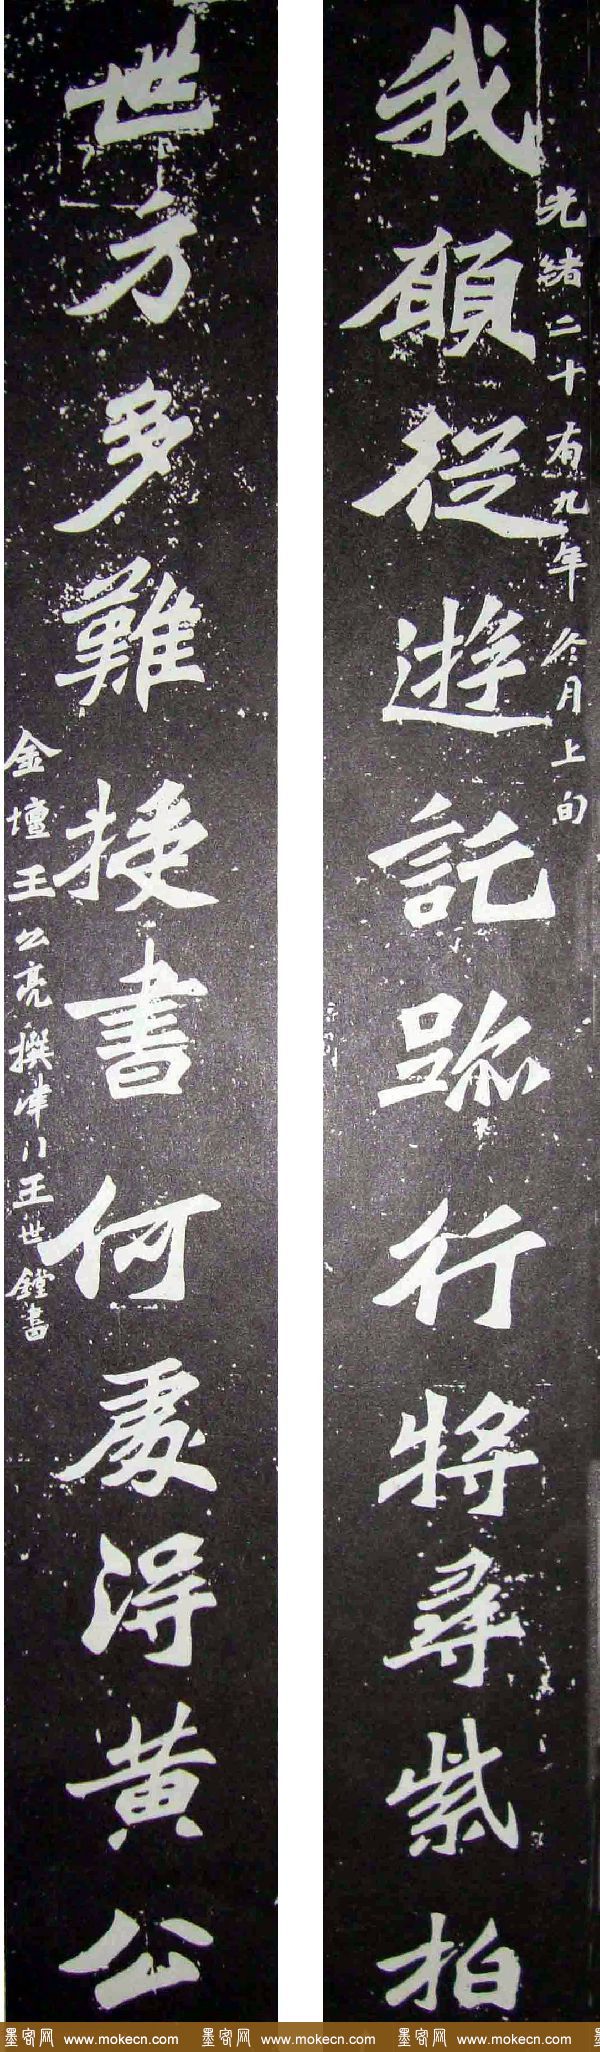 光緒二十有九年仒月上旬
我願從遊託跡行將尋紫柏
世方多難授書何處得黃公
金壇王公亮撰津門王世鏜書
墨客网 www.mokecn.com 墨客网 www.mokecn.com 墨客网 www.mokecn.com